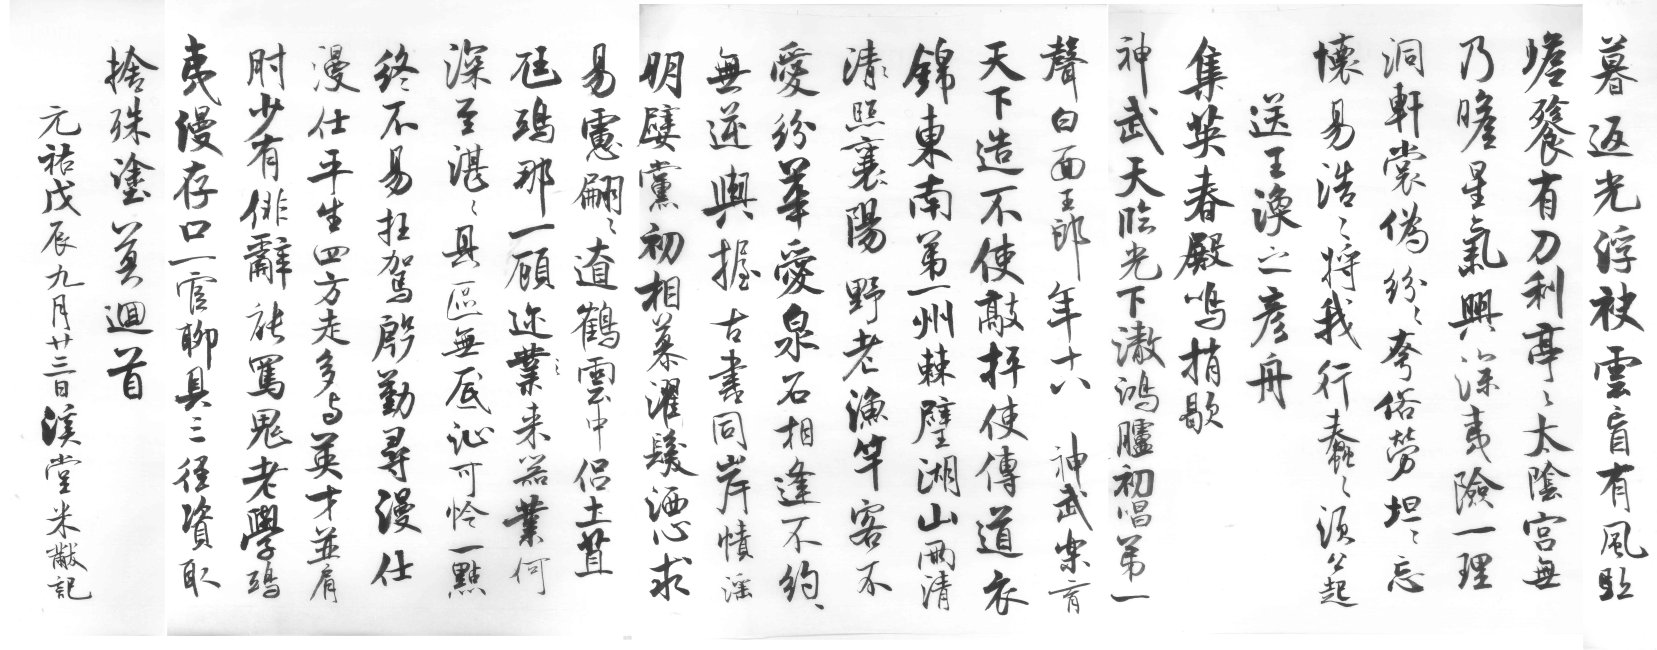 暮返光浮被雲盲有風馭
蟾餐有刀利亭〻太陰宮無
乃瞻星氣興深夷險一理
洞軒裳偽紛〻夸俗勞坦〻忘
懷易浩〻將我行蠢〻須公起
送王渙之彥舟
集英春殿鳴捎歇
神武天臨光下澈鴻臚初唱第一
聲白面王郎年十八神武樂育
天下造不使敲抨使傳道衣
錦東南第一州棘璧湖山兩清
清照襄陽野老漁竿客不
愛紛華愛泉石相逢不約
無逆輿握古書同岸幘淫
明嬖黨初相慕濯髮洒心求
易慮翩〻遼鶴雲中侶土苴
尪鴟那一顧邇業〻来器業何
深至湛〻具區無底沚可怜一點
終不易枉駕殷勤尋漫仕
漫仕平生四方走多与英才並肩
肘少有俳辭能罵鬼老學鴟
夷漫存口一官聊具三徑資取
捨殊塗莫迴首
元祐戊辰九月廿三日溪堂米黻記